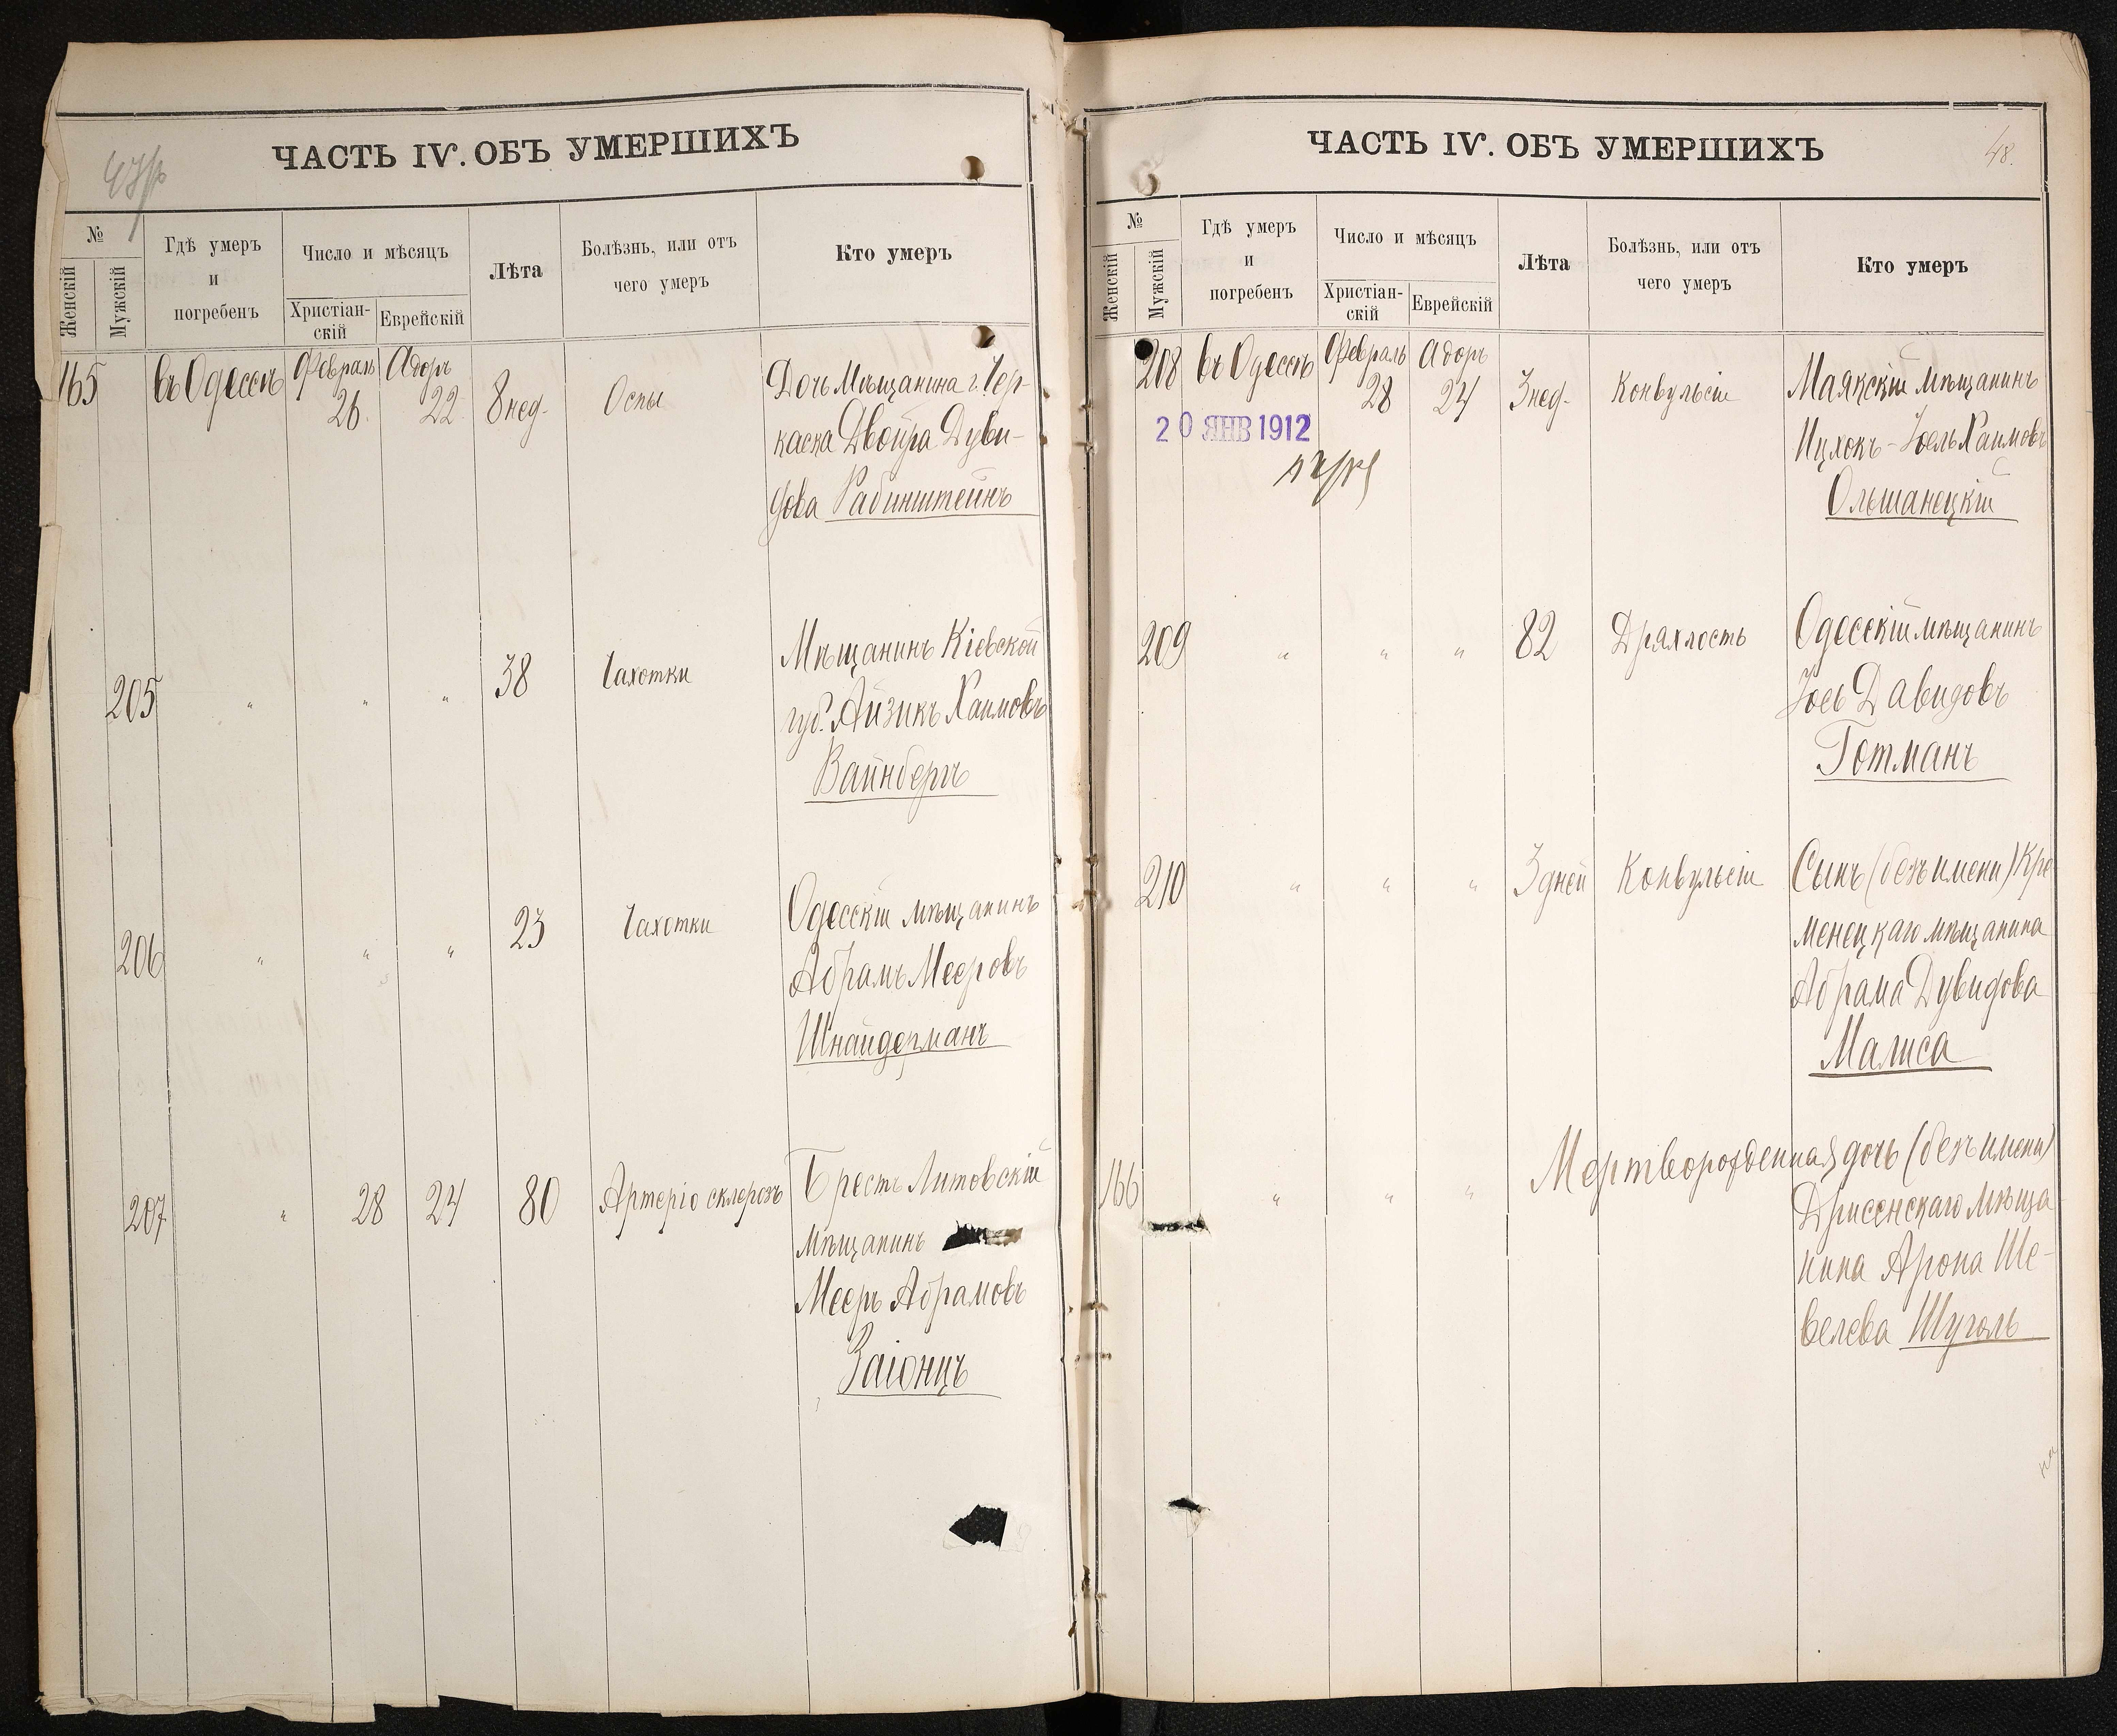 47об
ЧАСТЬ IV. ОБЪ УМЕРШИХЪ
№
Женскій
Мужскій
Гдѣ умеръ
и
погребенъ
Число и мѣсяцъ
Христіан-
скій
Еврейскій
Лѣта
Болѣзнь, или отъ
чего умеръ
Кто умеръ
165 въ Одессѣ Февраль 26. Адоръ 22. 8 нед. Оспы Дочь Мѣщанина г. Чер-
каска Двойра Дуви-
дова Рабинштейнъ
205 " " " 38 Чахотки Мѣщанинъ Кіевской
губ. Айзикъ Хаимовъ
Вайнбергъ
206 " " " 23 Чахотки Одесскій мѣщанинъ
Абрамъ Мееровъ
Шнайдерманъ
207 " 28 24 80 Артеріо склерозъ Брестъ Литовскій
мѣщанинъ
Мееръ Абрамовъ
Заіонцъ
ЧАСТЬ IV. ОБЪ УМЕРШИХЪ
48.
№
Женскій
Мужскій
Гдѣ умеръ
и
погребенъ
Число и мѣсяцъ
Христіан-
скій
Еврейскій
Лѣта
Болѣзнь, или отъ
чего умеръ
Кто умеръ
208 въ Одессѣ Февраль 28 Адоръ 24 3 нед. Конвульсіи Маякскій мѣщанинъ
20 ЯНВ 1912
Ицхокъ-Іоель Хаимовъ
Ольшанецкій
209 " " " 82 Дряхлость Одесскій мѣщанинъ
Іось Давидовъ
Готманъ
210 " " " 3 дней Конвульсіи Сынъ (безъ имени) Кре
менецкаго мѣщанина
Абрама Дувидова
Малиса
166 " " " Мертворожденная дочь (безъ имени)
Дрисенскаго мѣща
нина Арона Ше-
велева Шуголь